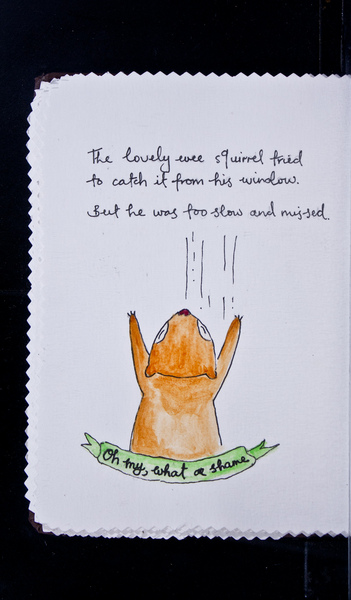 The lovely wee squirrel tried
to catch it from his window.
But he was too slow and missed.
Oh my, what a shame